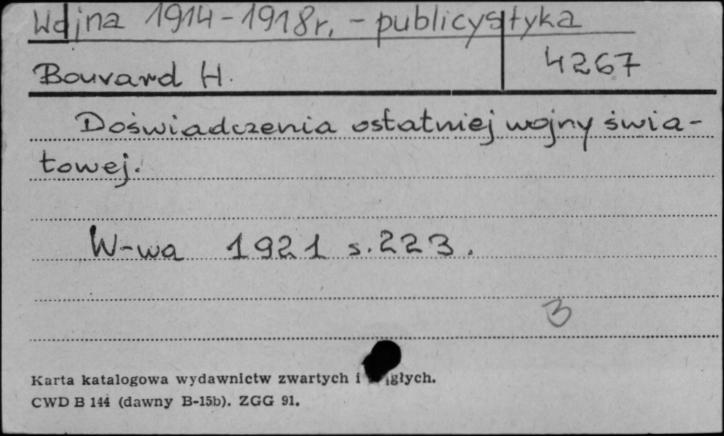 Wojna 1914-1918r. - publicystyka
Bouvard H.
4267
Doświadczenia ostatniej wojny świa-
towej.
W-wa 1921 s. 223.
3
Karta katalogowa wydawnictw zwartych i
CWD B 144 (dawny B-15b). ZGG 91.